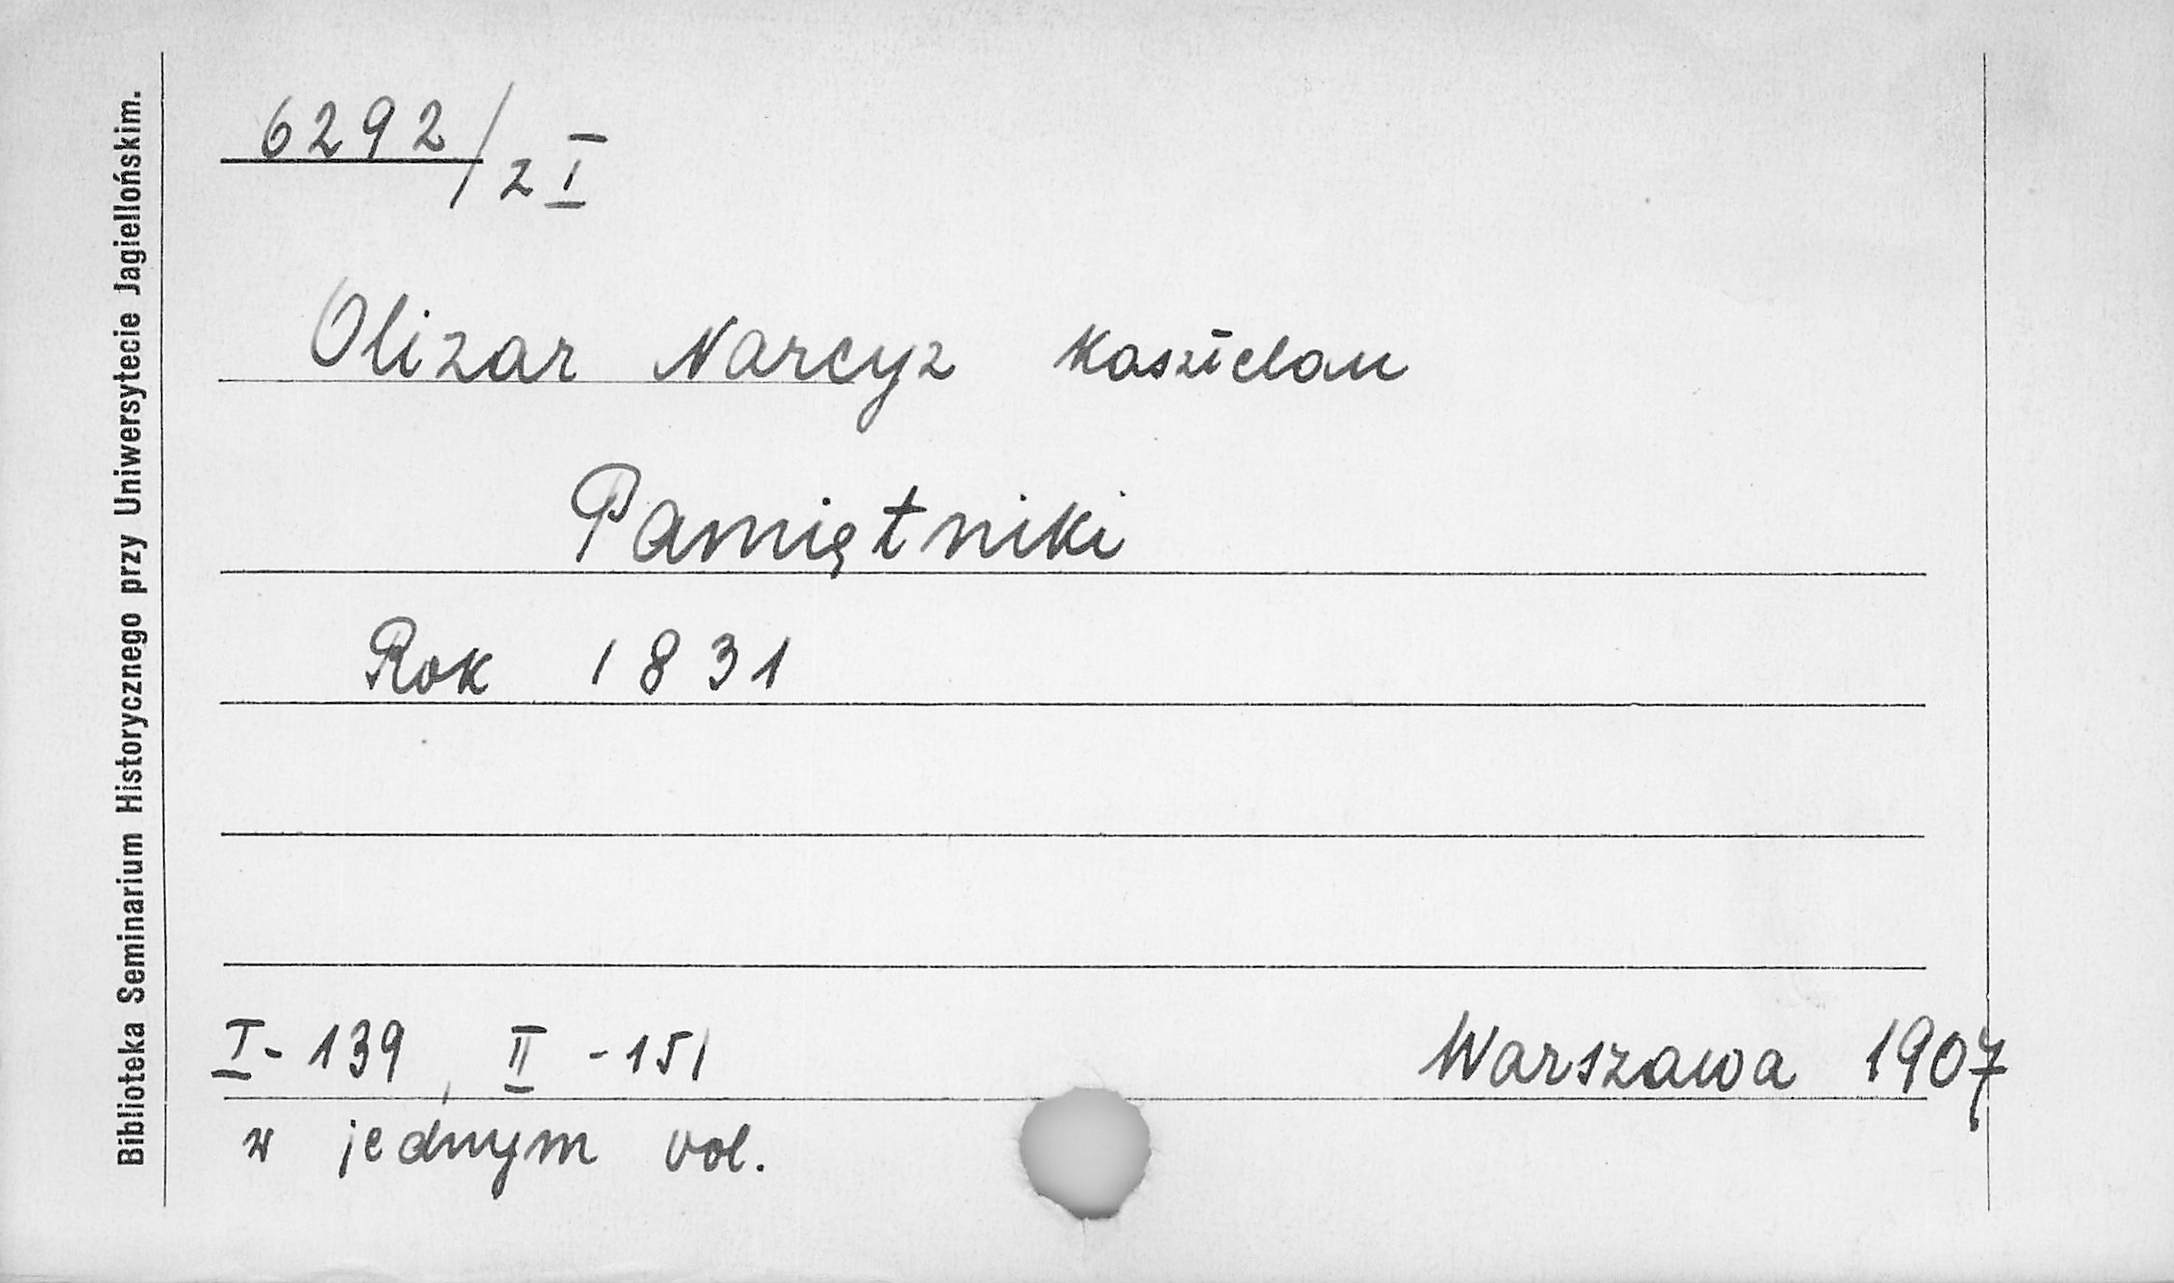 Biblioteka Seminarium Historycznego przy Uniwersytecie Jagiellońskim.
6292/2 I
Olizar Narcyz Kasztelan
Pamiętniki
Rok 1831
I - 139, II - 151
Warszawa 1907
w jednym vol.